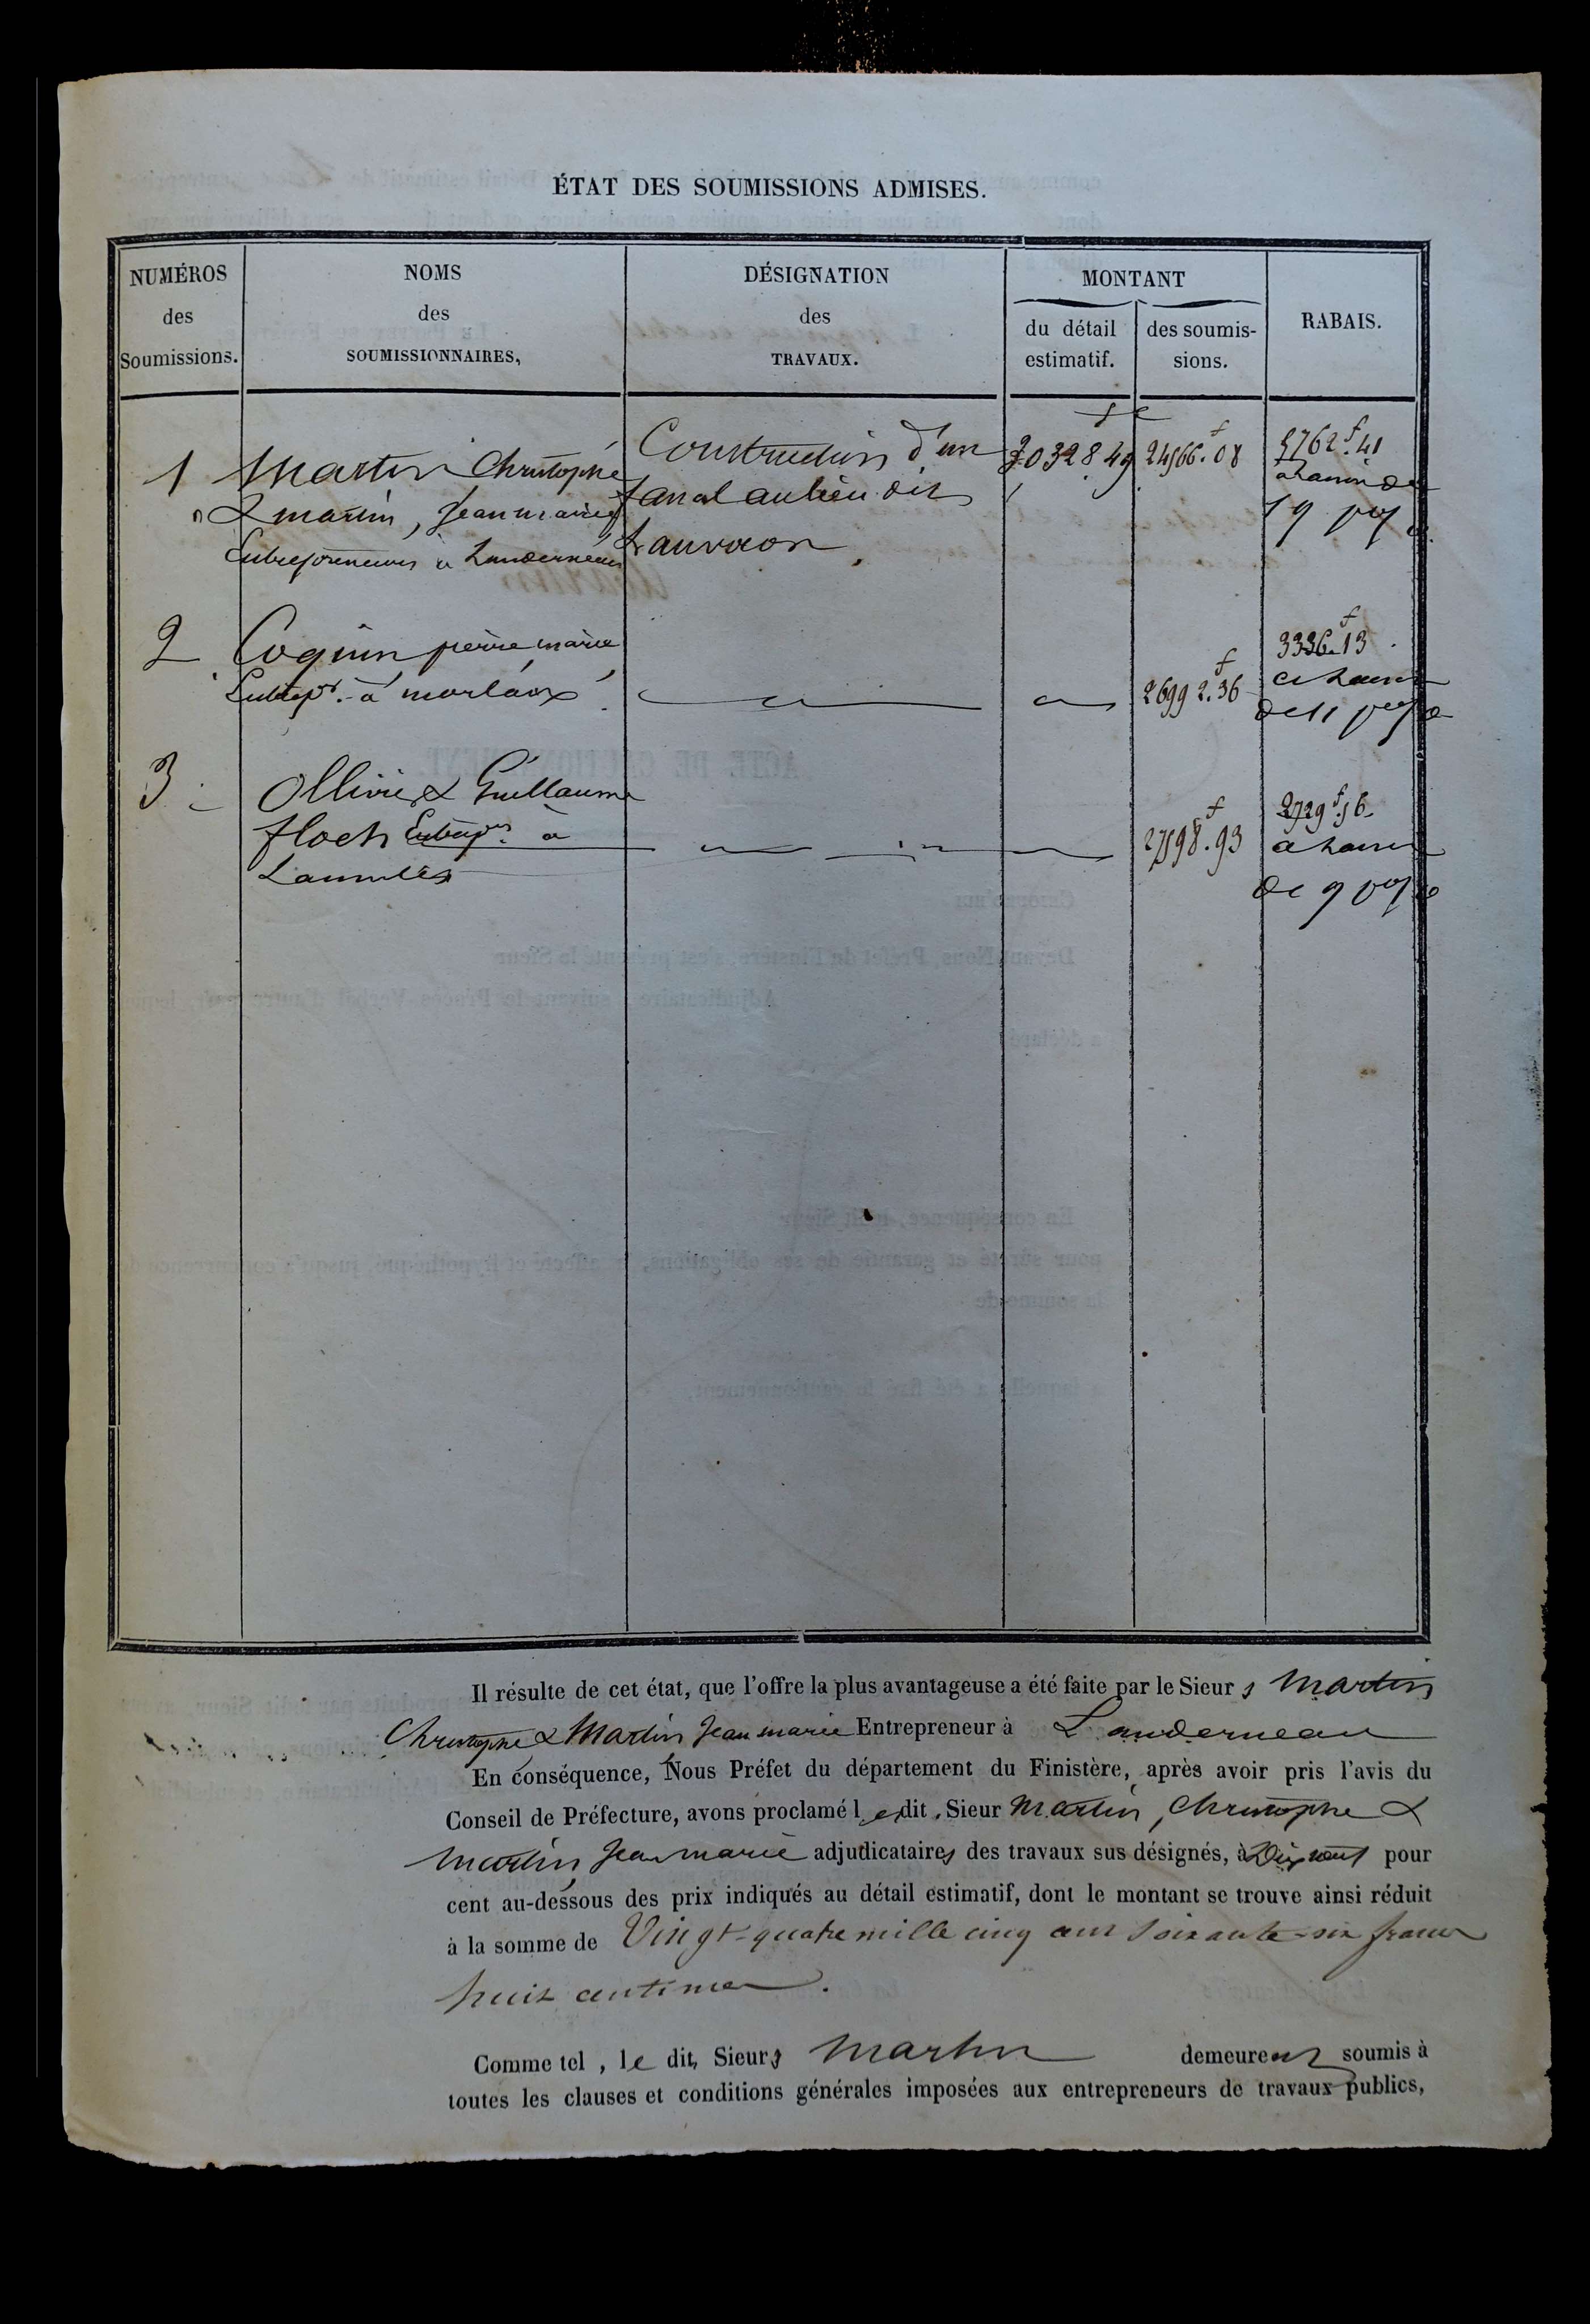 ÉTAT DES SOUMISSIONS ADMISES.
NUMÉROS
des
Soumissions.
NOMS
des
SOUMISSIONNAIRES,
DÉSIGNATION
des
TRAVAUX.
MONTANT
du détail
estimatif.
des soumis-
sions.
RABAIS.
1
Martin Christophe
& martin, Jean marie
Entrepreneurs à Landerneau
Construction d'un
fanal au lieu dit
Lanvaon
f c
30328 49
24566 f. 08
5762 f. 41
à raison de
19 p %
2
Coquin pierre marie
Entrepr. à morlaix
26992 f. 36
3336 f. 13
à raison
de 11 p %
3
Ollivier & Guillaume
floch Entrepr. à
Lannilis
27598 f. 93
2729 f. 56
à raison
de 9 p %
Il résulte de cet état, que l'offre la plus avantageuse a été faite par le Sieur s Martin
Christophe & Martin Jean marie Entrepreneur à Landerneau
En conséquence, Nous Préfet du département du Finistère, après avoir pris l'avis du
Conseil de Préfecture, avons proclamé les dit, Sieur Martin, Christophe &
Martin Jean marie adjudicataires des travaux sus désignés, à Dix neuf pour
cent au-dessous des prix indiqués au détail estimatif, dont le montant se trouve ainsi réduit
à la somme de Vingt-quatre mille cinq cent soixante-six francs
huit centimes.
Comme tel, le dit, Sieurs Martin demeurent soumis à
toutes les clauses et conditions générales imposées aux entrepreneurs de travaux publics,